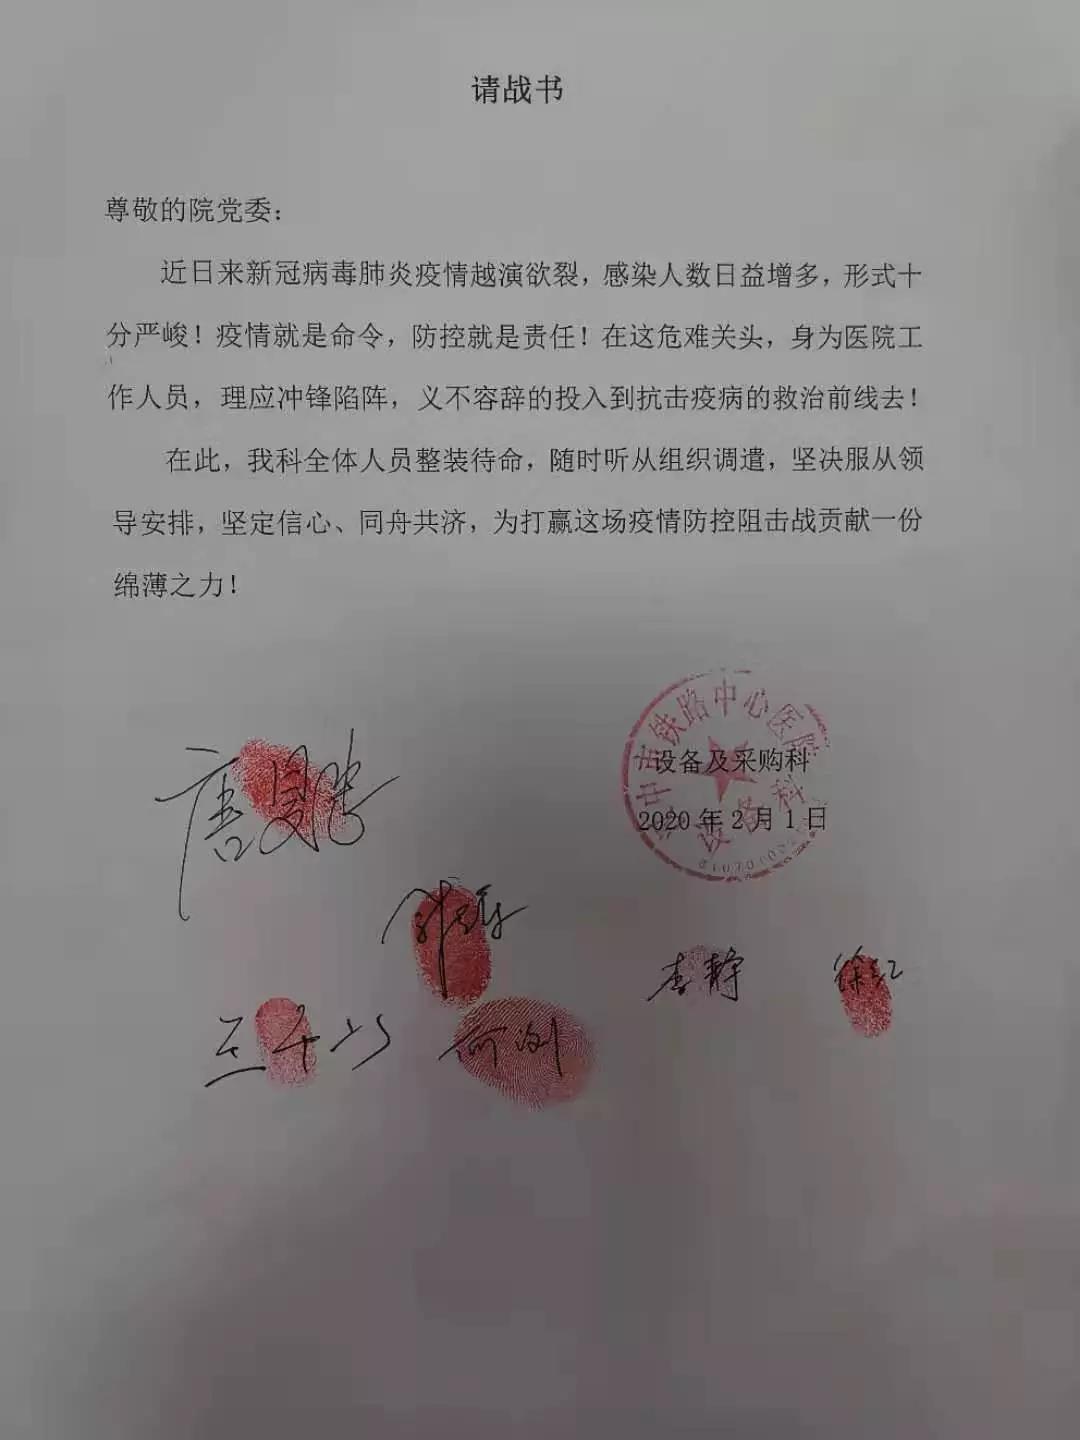 请战书
尊敬的院党委：
近日来新冠病毒肺炎疫情越演欲裂，感染人数日益增多，形式十
分严峻！疫情就是命令，防控就是责任！在这危难关头，身为医院工
作人员，理应冲锋陷阵，义不容辞的投入到抗击疫病的救治前线去！
在此，我科全体人员整装待命，随时听从组织调遣，坚决服从领
导安排，坚定信心、同舟共济，为打赢这场疫情防控阻击战贡献一份
绵薄之力！
铁路中心医院
设备及采购科
设备科
2020年2月1日
李静
徐红